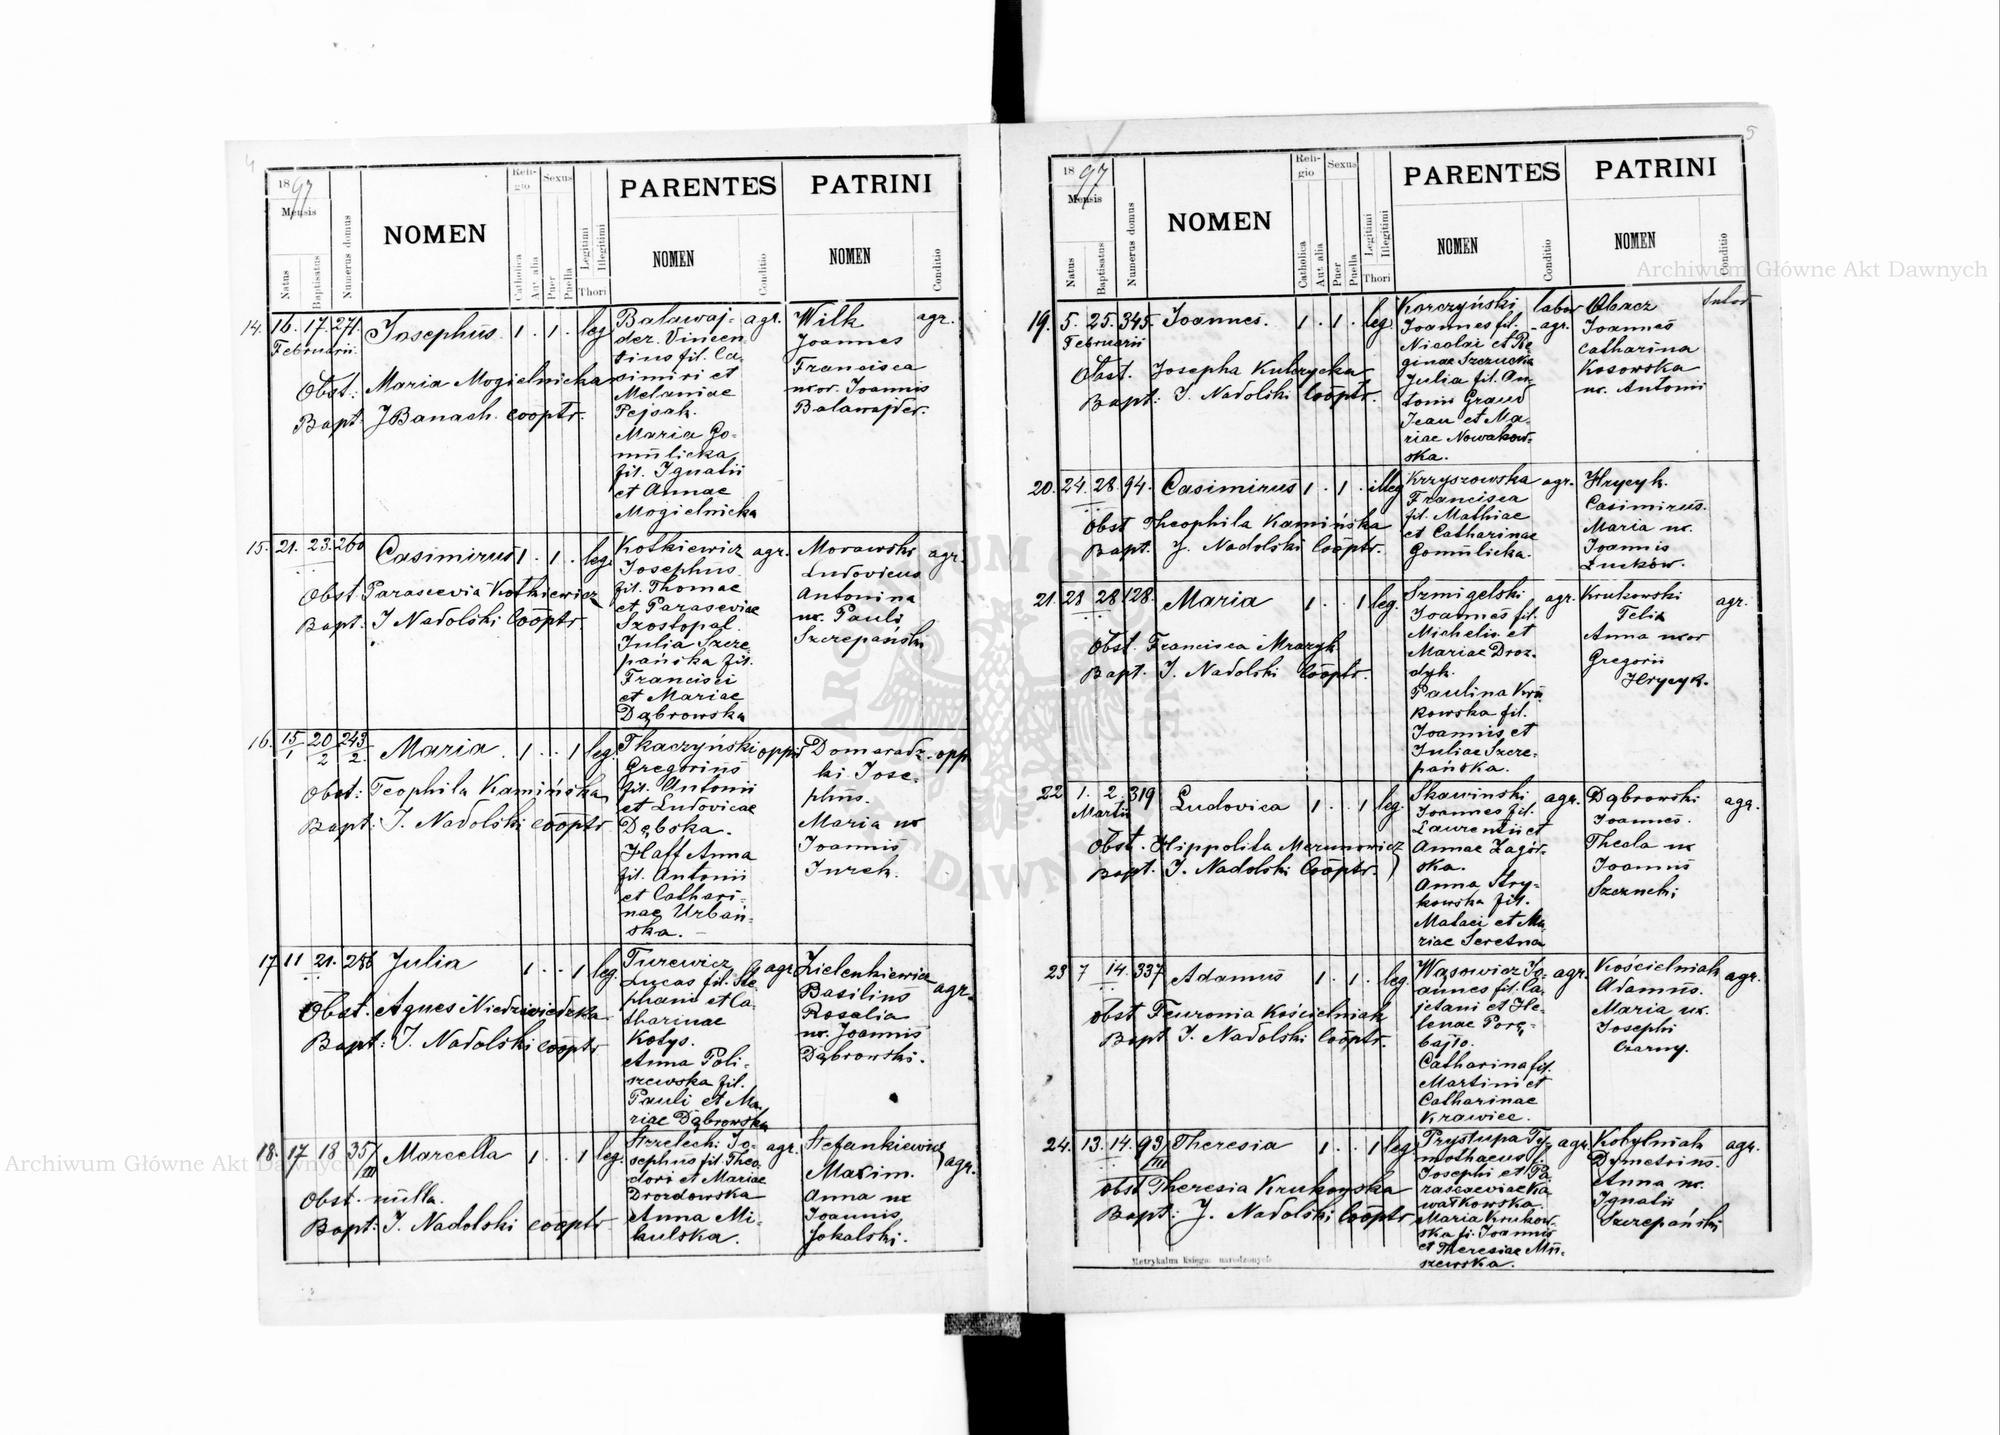 4
1897
Mensis
Natus
Baptisatus
Numerus domus
NOMEN
Religio
Catholica
Aut alia
Sexus
Puer
Puella
Legitimi
Illegitimi
Thori
PARENTES
NOMEN
Conditio
PATRINI
NOMEN
Conditio
14. 16. 17. 271. Josephus. 1 . 1 . leg
Februarii.
Obst.: Maria Mogielnicka
Bapt. J Banach. coöptr.
Balawaj-
der. Vincen
tius fil. Ca-
simiri et
Melaniae
Pejsak.
Maria Go-
mulicka
fil. Ignatii
et Annae
Mogielnicka
agr.
Wilk
Joannes
Francisca
uxor. Joannis
Balawajder.
agr.
15. 21. 23. 260 Casimirus 1 . 1 . leg.
Obst. Parascevia Kotkiewicz
Bapt. J Nadolski Coöptr.
Kotkiewicz
Josephus.
fil. Thomae
et Parasceviae
Szostopal.
Julia Szcze-
pańska fil.
Francisci
et Mariae
Dąbrowska
agr.
Morawski
Ludovicus
Antonina
ux. Pauli
Szczepański
agr.
16. 15/1 20/2 243/2 Maria . 1 . . 1 leg.
Obst: Teophila Kamińska
Bapt: J. Nadolski coöptr
Tkaczyński
Gregorius
fil. Antonii
et Ludovicae
Dębska.
Haff Anna
fil. Antonii
et Cathari-
nae Urbań-
ska.
Domaradz-
ki Jose-
phus.
Maria ux
Joannis
Jurek.
opp
17 11 21. 286 Julia 1 . . 1 leg.
Obst. Agnes Niedzwiedzka
Bapt: J. Nadolski coöptr
Turewicz
Lucas fil. Ste-
phani et Ca-
tharinae
Kotys.
Anna Poli-
szewska fil.
Pauli et Ma-
riae Dąbrowska
agr.
Zielenkiewicz
Basilius
Rosalia
ux. Joannis
Dąbrowski.
agr.
18. 17 18 35/III Marcella 1 . . 1 leg.
Obst. nulla.
Bapt: J. Nadolski coöptr
Strzelecki Jo-
sephus fil. Theo-
dori et Mariae
Drozdowska
Anna Mi-
kulska.
agr.
Stefankiewicz
Maxim.
Anna ux
Joannis
Jokalski.
agr.
5
1897
Mensis
Natus
Baptisatus
Numerus domus
NOMEN
Religio
Catholica
Aut alia
Sexus
Puer
Puella
Legitimi
Illegitimi
Thori
PARENTES
NOMEN
Conditio
PATRINI
NOMEN
Conditio
19. 5. 25. 345. Joannes. 1 . 1 . leg.
Februarii
Obst. Josepha Kulczycka
Bapt: J. Nadolski Coöptr.
Korczyński
Joannes fil.
Nicolai et Re
ginae Szczucka
Julia fil. An-
tonii Grand
Jean et Ma-
riae Nowakow-
ska.
labor
agr.
Obacz
Joannes
Catharina
Kosowska
ux. Antonii
20. 24. 28. 94. Casimirus 1 . 1 . illeg
Obst Theophila Kamińska
Bapt. J. Nadolski Coöptr.
Krzyszowska
Francisca
fil. Mathiae
et Catharinae
Gomulicka.
agr.
Hrycyk.
Casimirus.
Maria ux.
Joannis
Zuckow.
21. 23 28 128. Maria 1 . . 1 leg.
Obst. Francisca Mrozyk
Bapt. J. Nadolski Coöptr.
Szmigelski
Joannes fil.
Michelis et
Mariae Droz-
dyk.
Paulina Kru
kowska fil.
Joannis et
Juliae Szcze-
pańska.
agr.
Krukowski
Felix
Anna uxor
Gregorii
Hrycyk.
agr.
22 1. 2 319 Ludovica 1 . . 1 leg.
Martii
Obst. Hippolita Merunowicz
Bapt. J. Nadolski Coöptr.
Skawinski
Joannes fil.
Laurentii et
Annae Zagór-
ska.
Anna Stry-
kowska fil.
Mataei et Ma
riae Seretna
agr.
Dąbrowski
Joannes.
Thecla ux
Joannis
Szernecki
agr.
23 7 14. 337 Adamus 1 . 1 . leg.
Obst Feuronia Kościelniak
Bapt J. Nadolski Coöptr.
Wąsowicz Jo-
annes fil. Ca-
jetani et He-
lenae Porę-
bajło.
Catharina fil.
Martini et
Catharinae
Krawiec.
agr.
Kościelniak
Adamus.
Maria ux.
Josephi
Czarny.
agr.
24. 13. 14. 93/III Theresia 1 . . 1 leg
Obst Theresia Krukowska
Bapt: J. Nadolski Coöptr.
Prystupa Ty-
mothaeus f.
Josephi et Pa-
rasceviae Ka
wałkowska.
Maria Krukow-
ska fi. Joannis
et Theresiae Mu-
szewska.
agr.
Kobylniak
Dymetrius.
Anna ux.
Ignatii
Szczepański
agr.
Metrykalna księga: narodzonych
Archiwum Główne Akt Dawnych
Archiwum Główne Akt Dawnych
ARCHIWUM GŁÓWNE AKT DAWNYCH